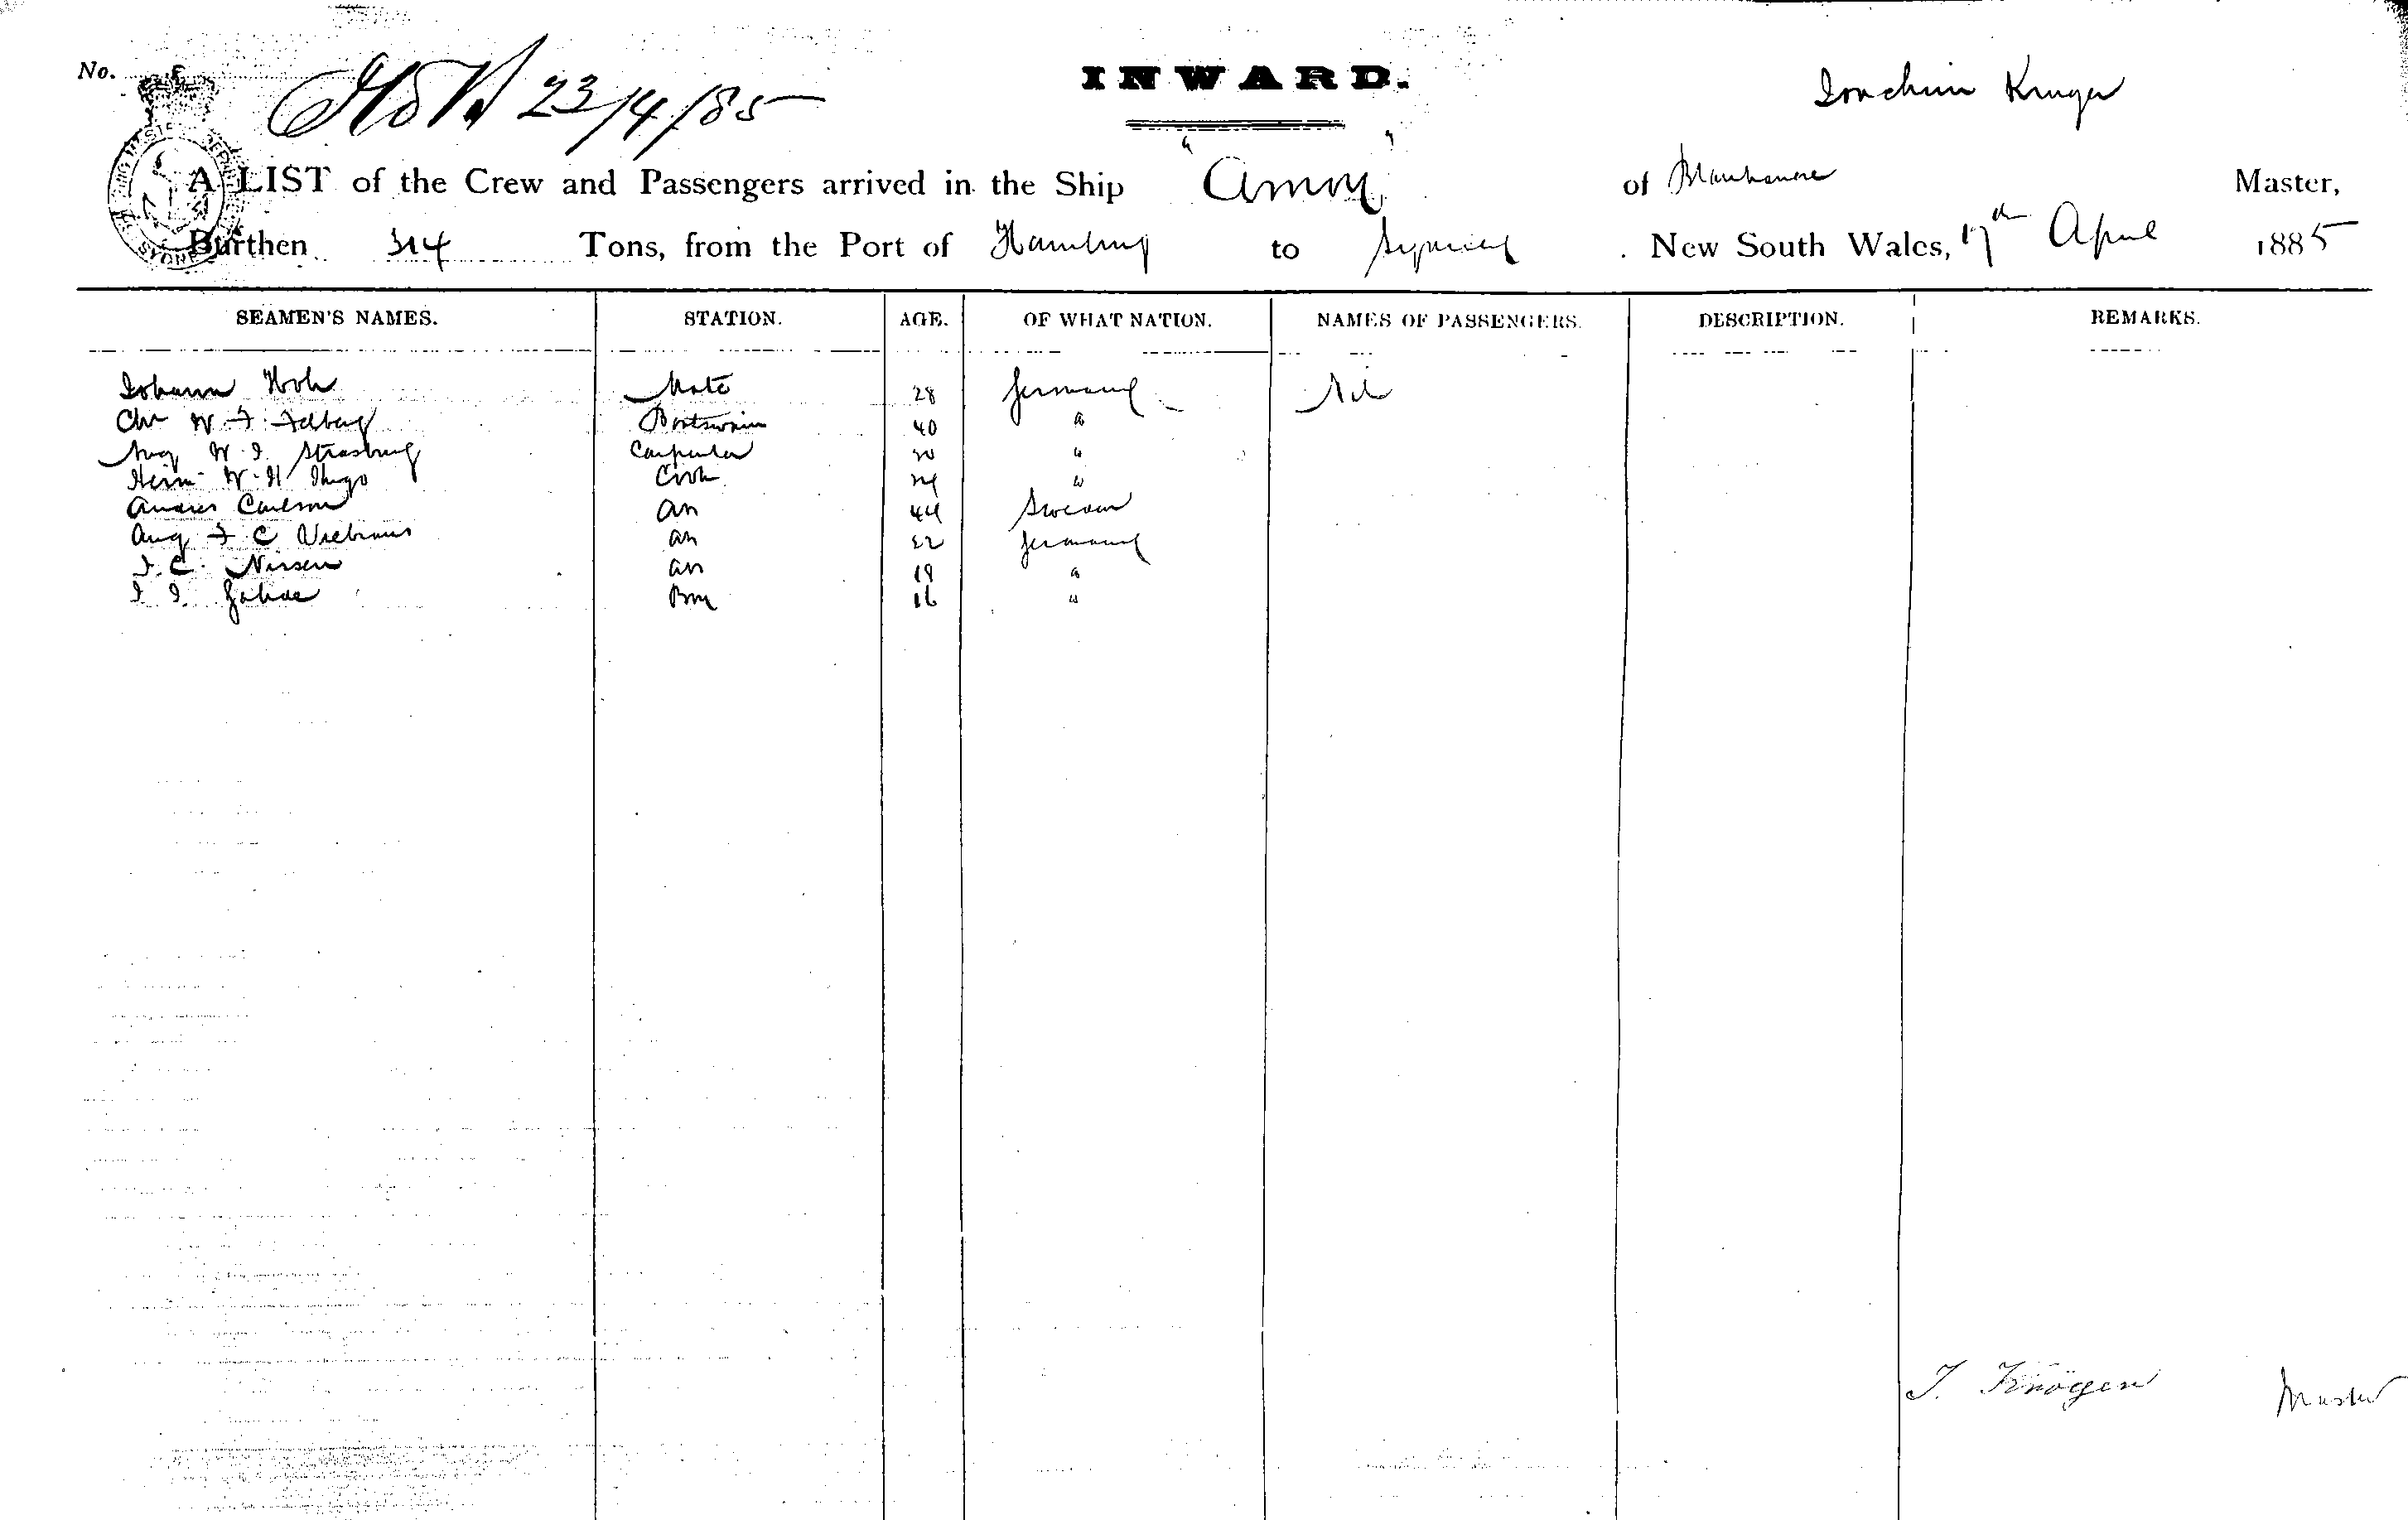 No. 23/4/85
INWARD.
Joachim Kruger
A LIST of the Crew and Passengers arrived in the Ship "Amoy" of Blankenese Master,
Burthen 314 Tons, from the Port of Hamburg to Sydney New South Wales, 17th April 1885
SEAMEN'S NAMES. STATION. AGE. OF WHAT NATION. NAMES OF PASSENGERS. DESCRIPTION. REMARKS.
Johann Mate 28 Germany Nil
Chr W. F. Boatswain 40 "
Aug W. J. Strasburg Carpenter "
Herm W. H. Cook "
Andres Carlson AB 44 Sweden
Aug F C AB Germany
J. C. Nissen AB 19 "
J J Boy 16 "
J. Master